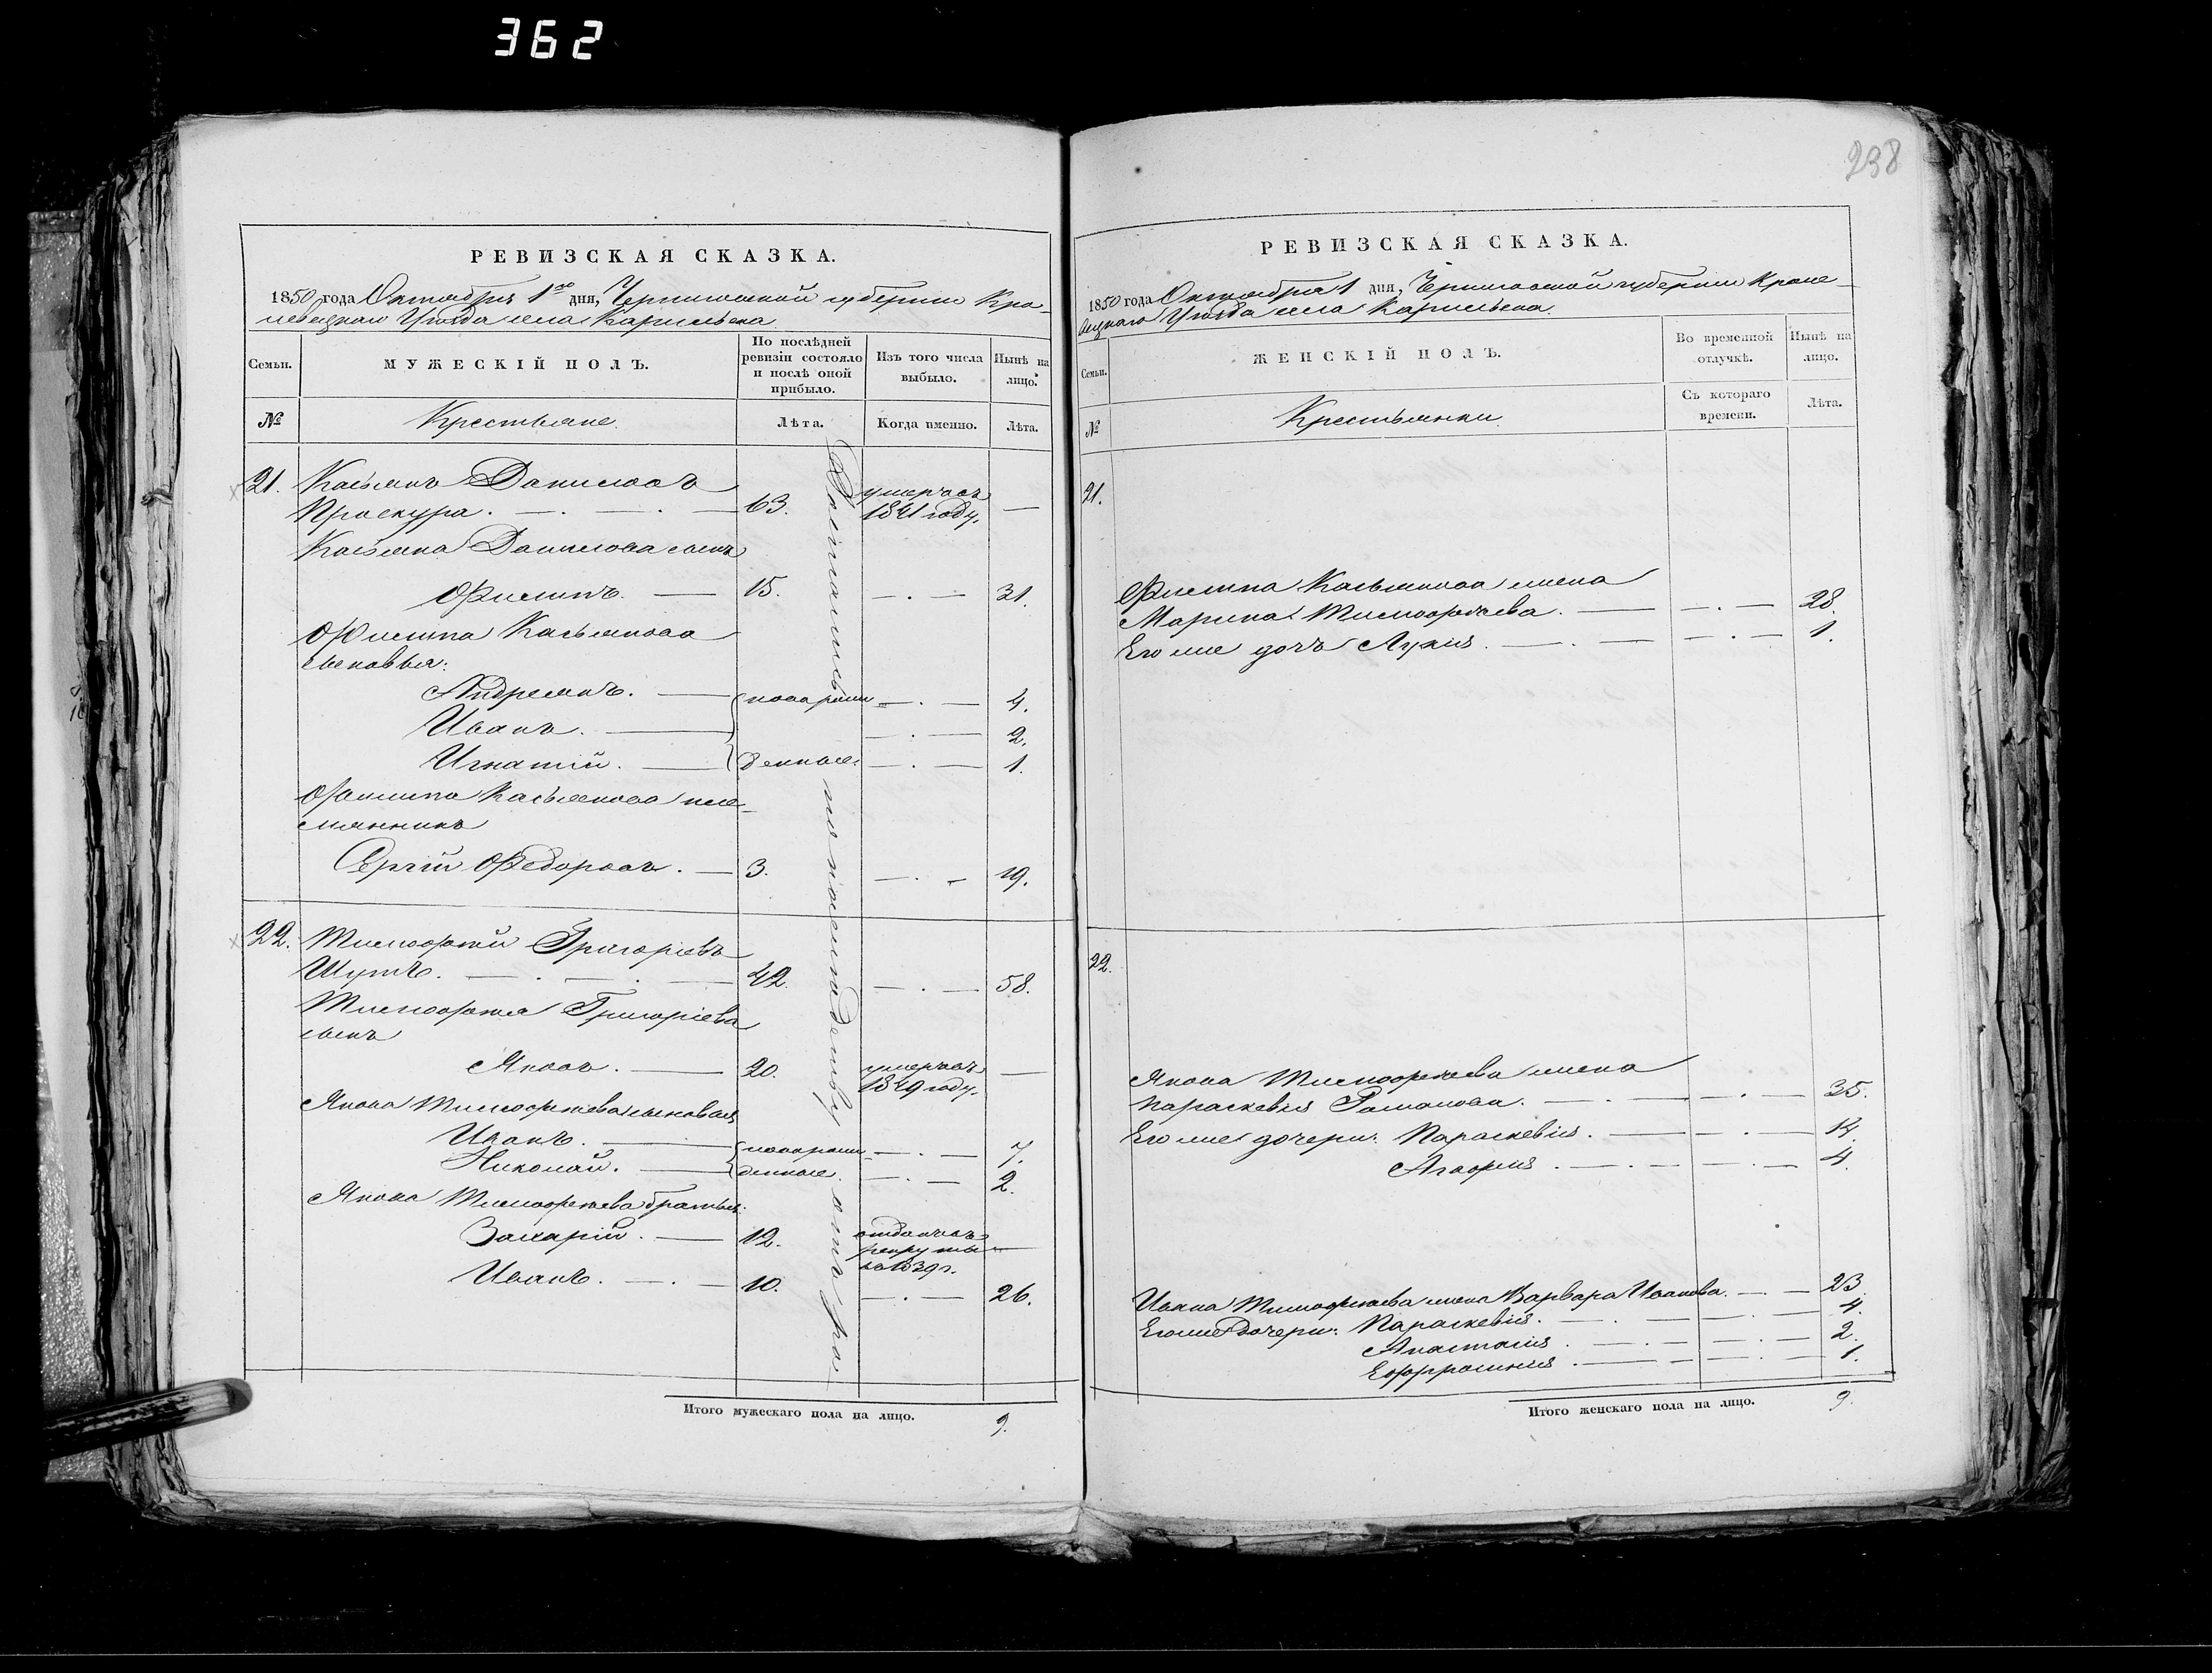 362
238
РЕВИЗСКАЯ СКАЗКА.
1850 года Октября 1го дня, Черниговской губернии Кро-
левецкаго Уѣзда села Карильска
Семьи.
МУЖЕСКІЙ ПОЛЪ.
По послѣдней ревизіи состояло и послѣ оной прибыло.
Изъ того числа выбыло.
Нынѣ на лицо.
№
Крестьяне.
Лѣта.
Когда именно.
Лѣта.
21. Касьянъ Даниловъ
Проскура. 63. умерчаъ 1841 году. —
Касьяна Данилова сынъ
Филипъ. — 15. — . — 31.
Филипа Касьянова
сыновья:
Андреянъ. — новорож- — . — 4.
Иванъ. — — . — 2.
Игнатій. — денные. — . — 1.
Филипа Касьянова пле-
мянникъ
Сергій Федоровъ. — 3. — . — 19.
22. Тимофей Григорьевъ
Шутъ. 42. — . — 58.
Тимофея Григорьева
сынъ
Яковъ. — 20. 1849 году. —
Якова Тимофеева сыновья
Иванъ. — новорож- — . — 7.
Николай. — денные. — . — 2.
Якова Тимофеева братья:
Захарій. — 12. рекруты 1839г. —
Иванъ. — . — 10. — . — 26.
Итого мужескаго пола на лицо. 9.
РЕВИЗСКАЯ СКАЗКА.
1850 года Октября 1 дня, Черниговской губерніи Кроле-
вецкаго Уѣзда села Карильска.
Семьи.
ЖЕНСКІЙ ПОЛЪ.
Во временной отлучкѣ.
Нынѣ на лицо.
№
Крестьянки.
Съ котораго времени.
Лѣта.
21.
Филипа Касьянова жена
Марина Тимофеева. — — . — 28.
Его же дочь Лукія. — . — — . — 1.
22.
Якова Тимофеева жена
Параскевія Романова. — . — — . — 35.
Его же дочери: Параскевія. — — . — 14.
Агафія. — . — — . — 4.
Ивана Тимофеева жена Варвара Иванова. — . — 23.
Его же дочери: Параскевія. — . — — . — 4.
Анастасія. — . — — . — 2.
Ефросинія. — — . — 1.
Итого женскаго пола на лицо. 9.